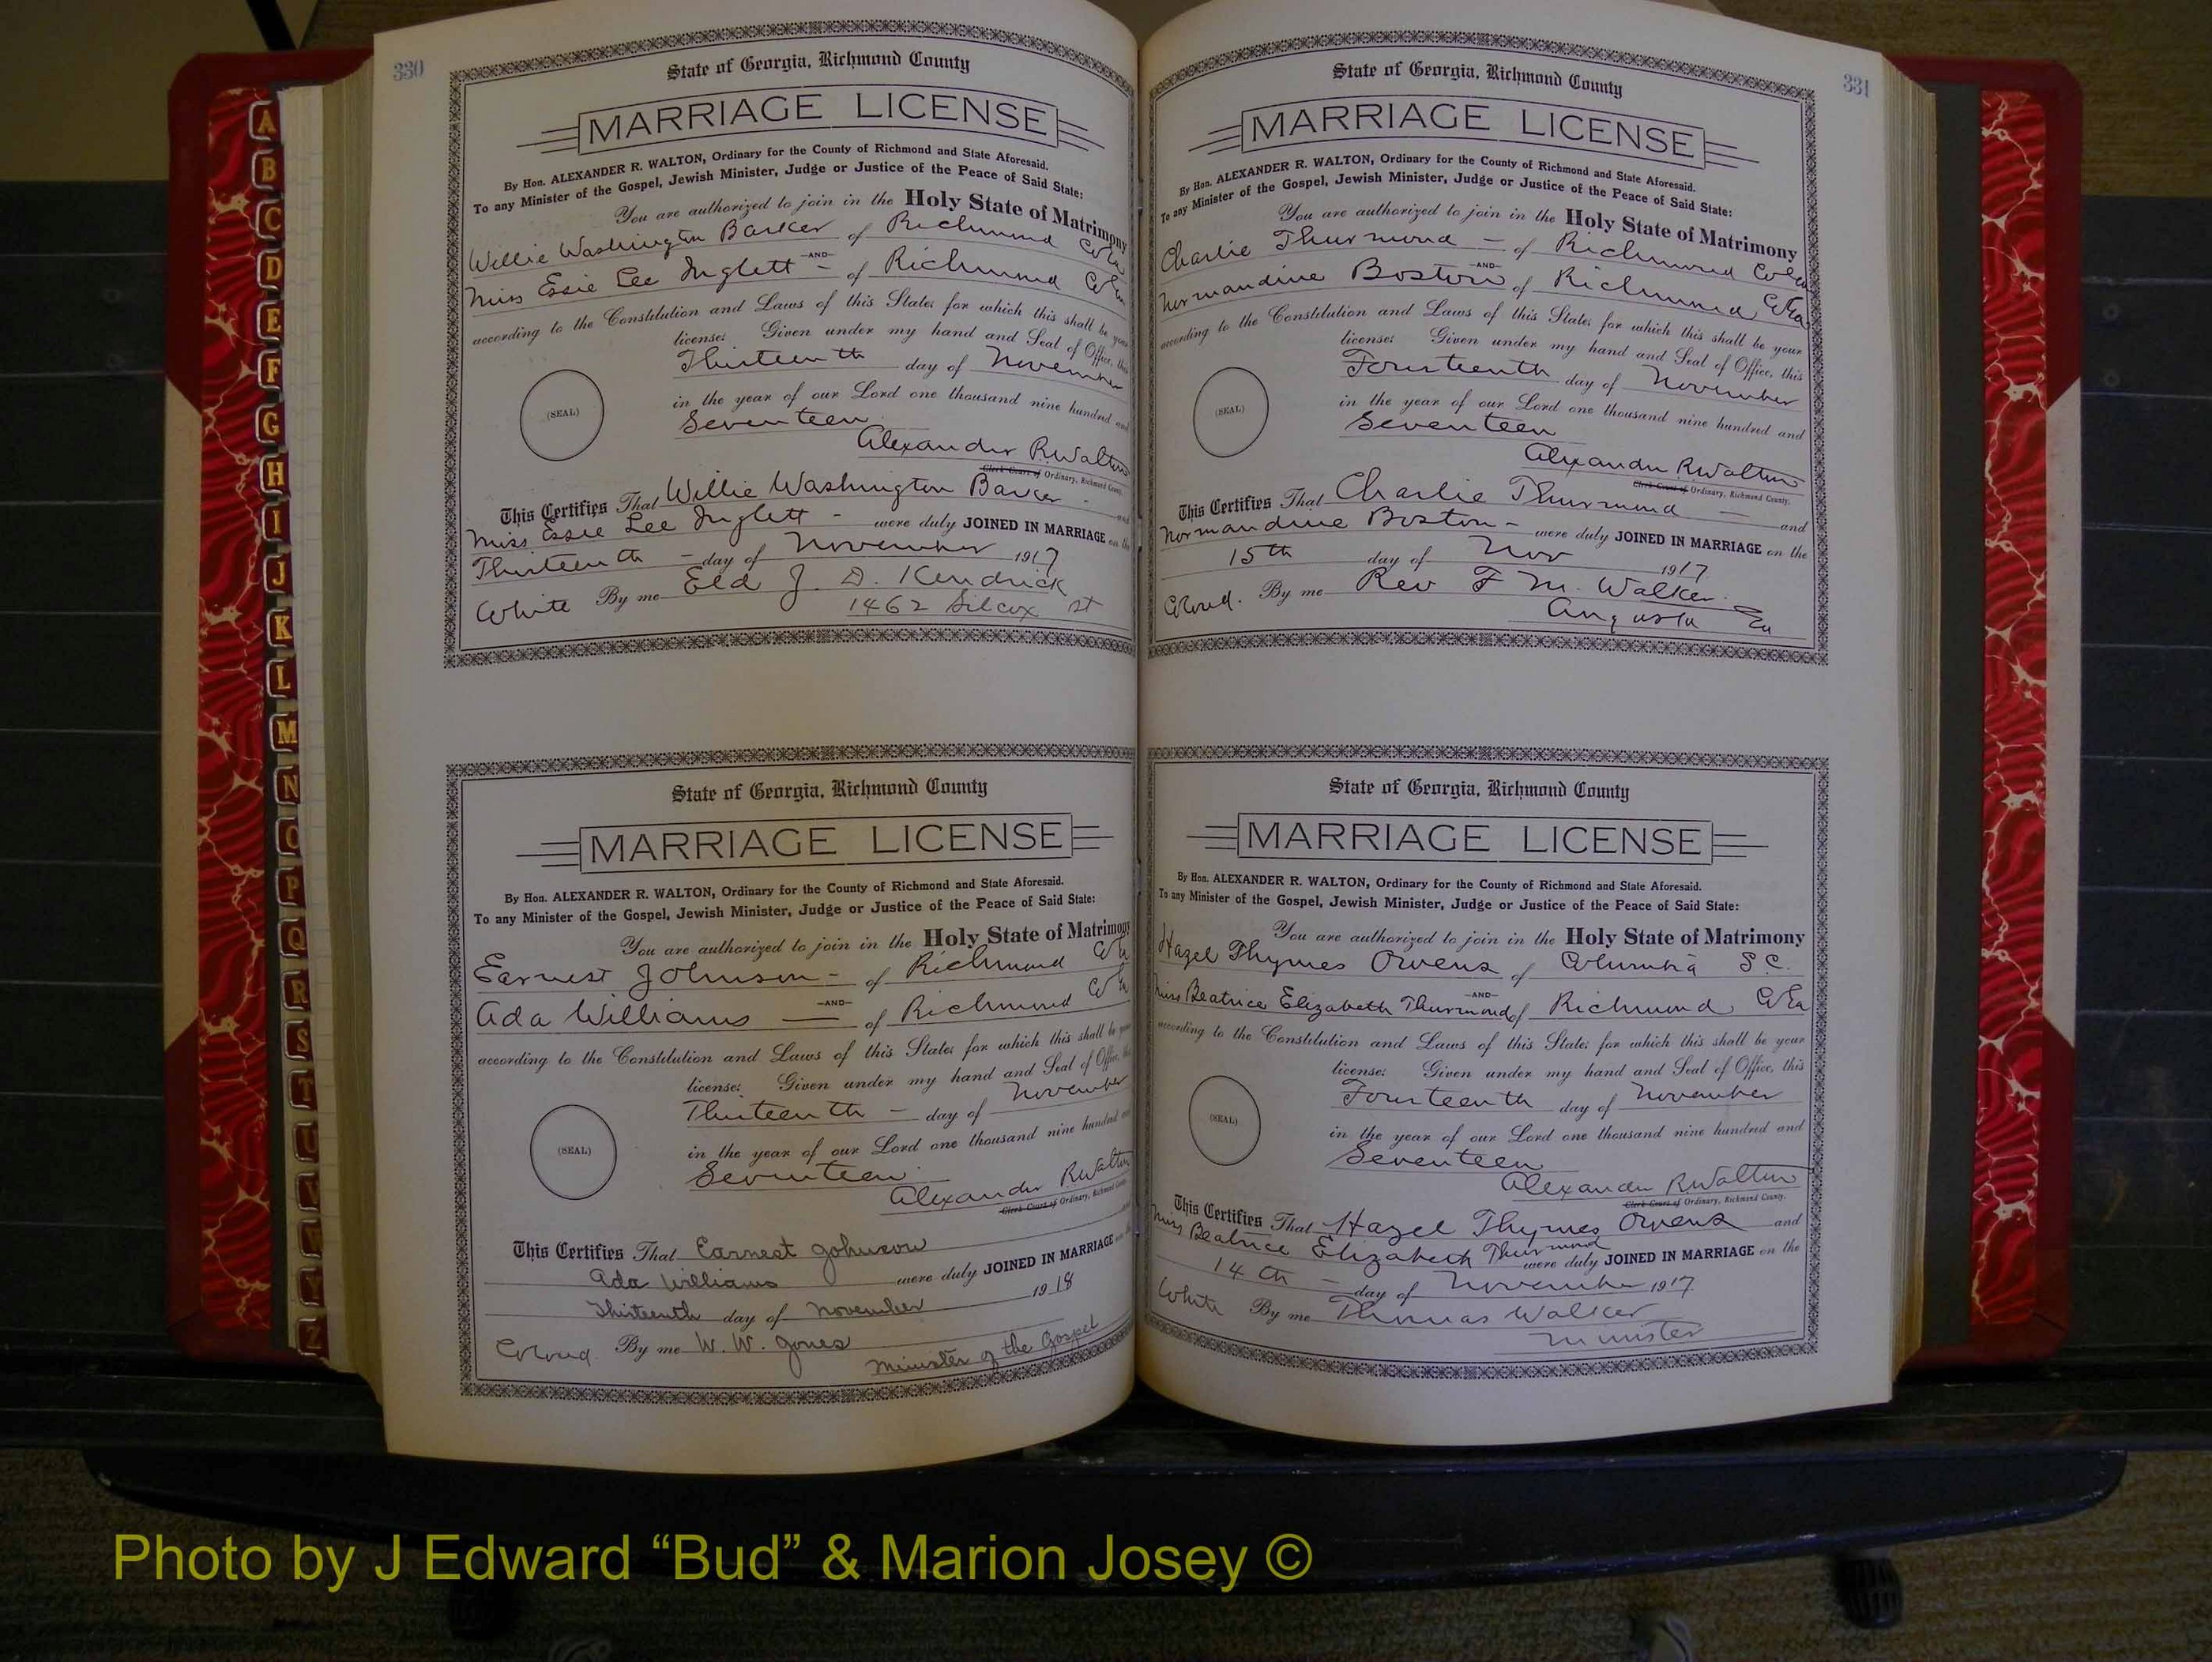 330
State of Georgia, Richmond County
MARRIAGE LICENSE
By Hon. ALEXANDER R. WALTON, Ordinary for the County of Richmond and State Aforesaid.
To any Minister of the Gospel, Jewish Minister, Judge or Justice of the Peace of Said State:
You are authorized to join in the Holy State of Matrimony
Willie Washington Barker of Richmond Co Ga
-AND-
Miss Essie Lee Inglett - of Richmond Co Ga
according to the Constitution and Laws of this State; for which this shall be your
license: Given under my hand and Seal of Office, this
Thirteenth day of November
(SEAL)
in the year of our Lord one thousand nine hundred and
Seventeen
Alexander R Walton
Clerk Court of Ordinary, Richmond County.
This Certifies That Willie Washington Barker - and
Miss Essie Lee Inglett - were duly JOINED IN MARRIAGE on the
Thirteenth - day of November 1917
White By me Eld J. D. Kendrick
1462 Silcox st
State of Georgia, Richmond County
MARRIAGE LICENSE
By Hon. ALEXANDER R. WALTON, Ordinary for the County of Richmond and State Aforesaid.
To any Minister of the Gospel, Jewish Minister, Judge or Justice of the Peace of Said State:
You are authorized to join in the Holy State of Matrimony
Earnest Johnson - of Richmond Co Ga
-AND-
Ada Williams — of Richmond Co Ga
according to the Constitution and Laws of this State; for which this shall be your
license: Given under my hand and Seal of Office, this
Thirteenth - day of November
(SEAL)
in the year of our Lord one thousand nine hundred and
Seventeen
Alexander R Walton
Clerk Court of Ordinary, Richmond County.
This Certifies That Earnest Johnson and
Ada Williams were duly JOINED IN MARRIAGE on the
Thirteenth day of November 1918
Colored. By me W. W. Jones
Minister of the Gospel
331
State of Georgia, Richmond County
MARRIAGE LICENSE
By Hon. ALEXANDER R. WALTON, Ordinary for the County of Richmond and State Aforesaid.
To any Minister of the Gospel, Jewish Minister, Judge or Justice of the Peace of Said State:
You are authorized to join in the Holy State of Matrimony
Charlie Thurmond - of Richmond Co Ga
-AND-
Normandine Boston of Richmond Co Ga
according to the Constitution and Laws of this State; for which this shall be your
license: Given under my hand and Seal of Office, this
Fourteenth day of November
(SEAL)
in the year of our Lord one thousand nine hundred and
Seventeen
Alexander R Walton
Clerk Court of Ordinary, Richmond County.
This Certifies That Charlie Thurmond — and
Normandine Boston - were duly JOINED IN MARRIAGE on the
15th day of Nov 1917
Colored. By me Rev F M. Walker.
Augusta Ga
State of Georgia, Richmond County
MARRIAGE LICENSE
By Hon. ALEXANDER R. WALTON, Ordinary for the County of Richmond and State Aforesaid.
To any Minister of the Gospel, Jewish Minister, Judge or Justice of the Peace of Said State:
You are authorized to join in the Holy State of Matrimony
Hazel Thymes Owens of Columbia S.C.
-AND-
Miss Beatrice Elizabeth Thurmond of Richmond Co Ga
according to the Constitution and Laws of this State; for which this shall be your
license: Given under my hand and Seal of Office, this
Fourteenth day of November
(SEAL)
in the year of our Lord one thousand nine hundred and
Seventeen
Alexander R Walton
Clerk Court of Ordinary, Richmond County.
This Certifies That Hazel Thymes Owens and
Miss Beatrice Elizabeth Thurmond were duly JOINED IN MARRIAGE on the
14th - day of November 1917
White By me Thomas Walker
Minister
A
B
C
D
E
F
G
H
I
J
K
L
M
N
O
P
Q
R
S
T
U
V
W
Y
Z
Photo by J Edward “Bud” & Marion Josey ©